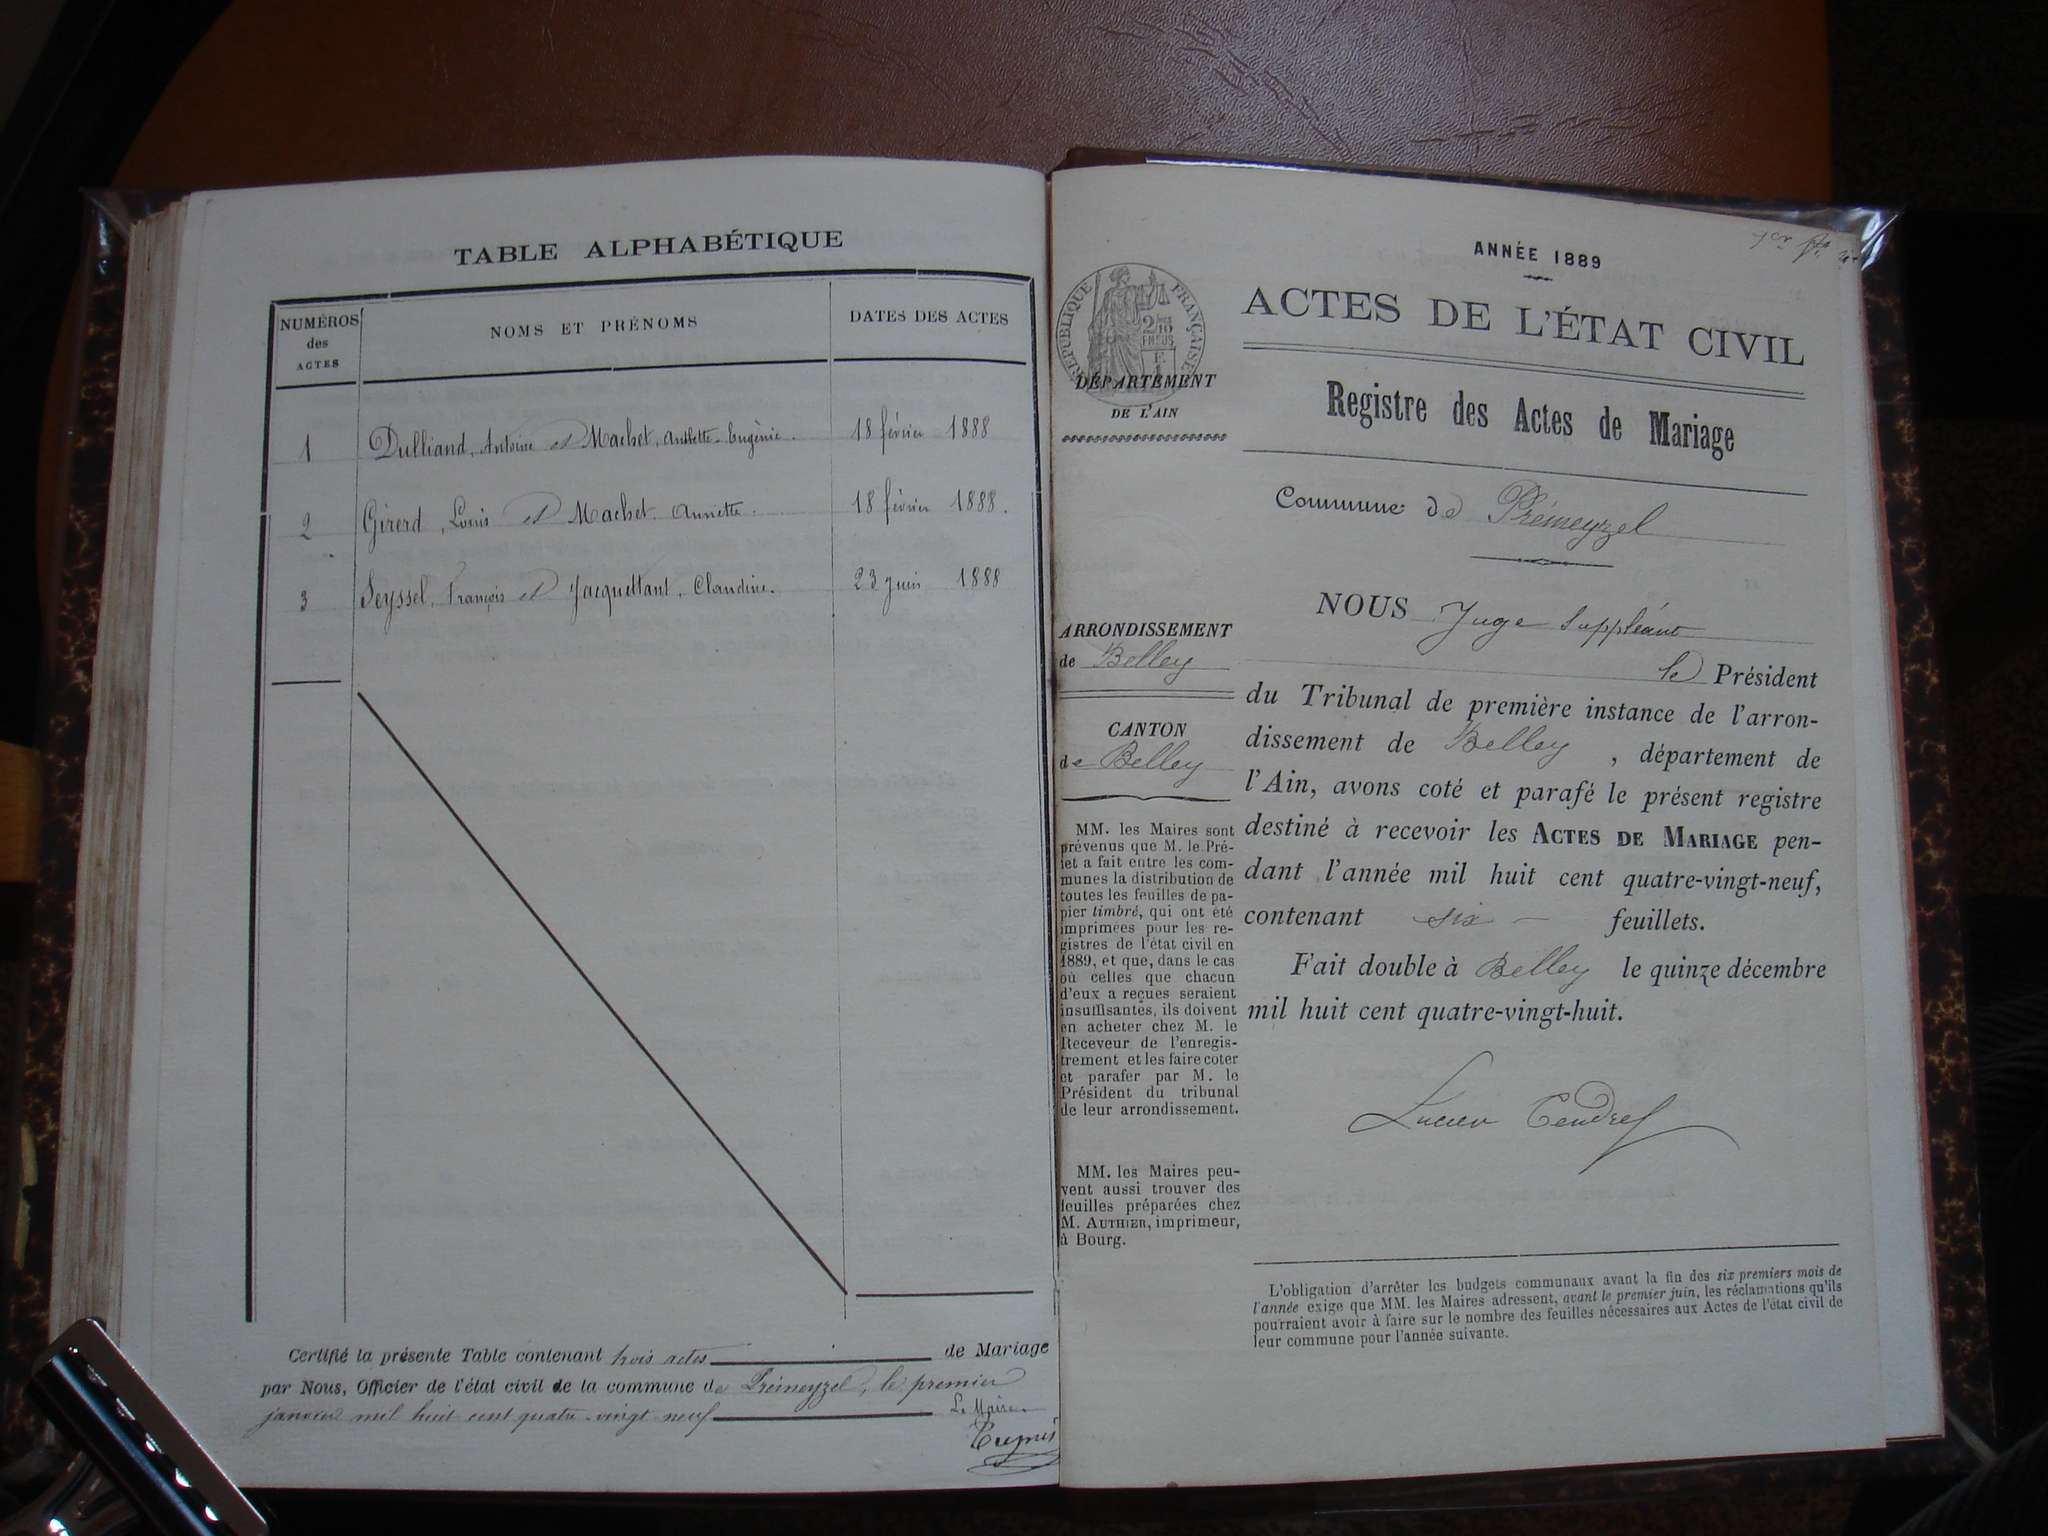 TABLE ALPHABÉTIQUE
NUMÉROS
des
ACTES
NOMS ET PRÉNOMS
DATES DES ACTES
1 Dulliand, Antoine et Machet, Anthelte-Eugènie. 18 février 1888
2 Girerd, Louis et Machet Annette. 18 février 1888.
3 Seyssel, François et Jacquettant, Claudine. 23 juin 1888
Certifié la présente Table contenant trois actes de Mariage
par Nous, Officier de l'état civil de la commune de Prémeyzel, le premier
janvier mil huit cent quatre-vingt-neuf Le Maire
ANNÉE 1889
ACTES DE L'ÉTAT CIVIL
RÉPUBLIQUE FRANÇAISE
DÉPARTEMENT
DE L'AIN
Registre des Actes de Mariage
Commune de Prémeyzel
NOUS Juge Suppléant
le Président
du Tribunal de première instance de l'arron-
dissement de Belley, département de
l'Ain, avons coté et parafé le présent registre
destiné à recevoir les ACTES DE MARIAGE pen-
dant l'année mil huit cent quatre-vingt-neuf,
contenant six feuillets.
Fait double à Belley le quinze décembre
mil huit cent quatre-vingt-huit.
Lucien Tendret
ARRONDISSEMENT
de Belley
CANTON
de Belley
MM. les Maires sont
prévenus que M. le Pré-
fet a fait entre les com-
munes la distribution de
toutes les feuilles de pa-
pier timbré, qui ont été
imprimées pour les re-
gistres de l'état civil en
1889, et que, dans le cas
où celles que chacun
d'eux a reçues seraient
insuffisantes, ils doivent
en acheter chez M. le
Receveur de l'enregis-
trement et les faire coter
et parafer par M. le
Président du tribunal
de leur arrondissement.
MM. les Maires peu-
vent aussi trouver des
feuilles préparées chez
M. AUTHIER, imprimeur,
à Bourg.
L'obligation d'arrêter les budgets communaux avant la fin des six premiers mois de
l'année exige que MM. les Maires adressent, avant le premier juin, les réclamations qu'ils
pourraient avoir à faire sur le nombre des feuilles nécessaires aux Actes de l'état civil de
leur commune pour l'année suivante.